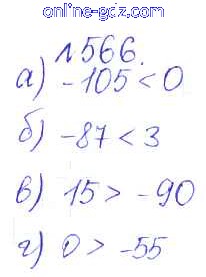 online-gdz.com
№566.
а) -105 < 0
б) -87 < 3
в) 15 > -90
г) 0 > -55